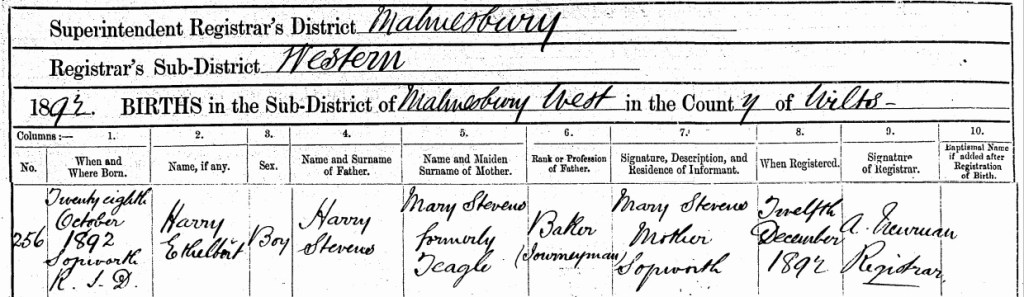 Superintendent Registrar's District Malmesbury
Registrar's Sub-District Western
1892. BIRTHS in the Sub-District of Malmesbury West in the County of Wilts
Columns:— 1. 2. 3. 4. 5. 6. 7. 8. 9. 10.
No. When and Where Born. Name, if any. Sex. Name and Surname of Father. Name and Maiden Surname of Mother. Rank or Profession of Father. Signature, Description, and Residence of Informant. When Registered. Signature of Registrar. Baptismal Name if added after Registration of Birth.
256
Twenty eighth
October
1892
Sopworth
R. S. D.
Harry
Ethelbert
Boy
Harry
Stevens
Mary Stevens
formerly
Teagle
Baker
(Journeyman)
Mary Stevens
Mother
Sopworth
Twelfth
December
1892
A. Newman
Registrar